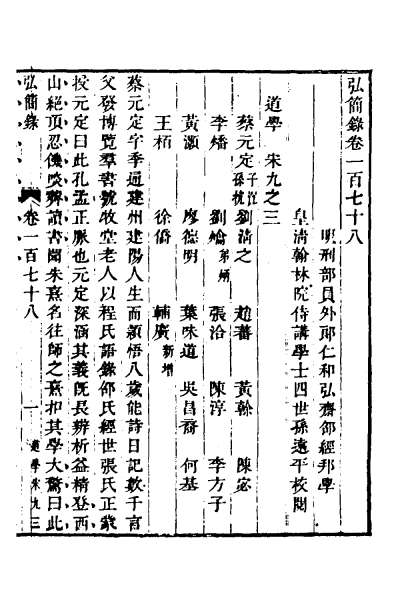 弘簡錄卷一百七十八
明刑部員外郎仁和弘齋邵經邦學
皇清翰林院侍講學士四世孫遠平校閱
道學 宋九之三
蔡元定 子沉 孫杭 劉清之 趙蕃 黃榦 陳宓
李燔 劉爚 弟炳 張洽 陳淳 李方子
黃灝 廖德明 葉味道 吳昌裔 何基
王栢 徐僑 輔廣 新增
蔡元定字季通建州建陽人生而穎悟八歲能詩日記數千言
父發博覽羣書號牧堂老人以程氏語錄邵氏經世張氏正蒙
授元定曰此孔孟正脈也元定深涵其義既長辨析益精登西
山絕頂忍饑啖薺讀書聞朱熹名往師之熹扣其學大驚曰此
弘簡錄 卷一百七十八 一 道學宋九三